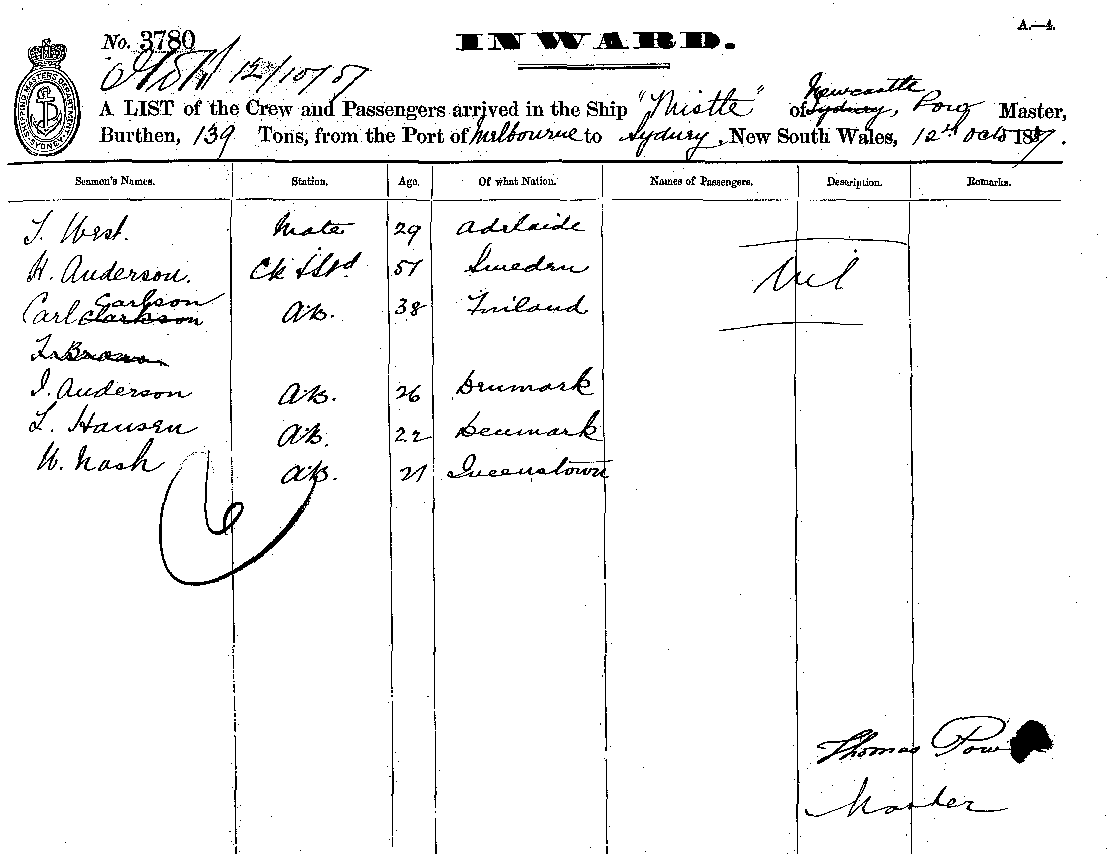 A.—4.
No. 3780
INWARD.
12/10/87
SHIPPING MASTER'S DEPARTMENT SYDNEY
Newcastle
A LIST of the Crew and Passengers arrived in the Ship "Thistle" of Sydney, Pow Master,
Burthen, 139 Tons, from the Port of Melbourne to Sydney, New South Wales, 12th Octr 1887.
Seamen's Names. Station. Age. Of what Nation. Names of Passengers. Description. Remarks.
T. West. Mate 29 Adelaide
H. Anderson. Ck & Std 51 Sweden Nil
Carlson
Carl Clarkson AB. 38 Finland
Brown
I. Anderson AB. 26 Denmark
L. Hansen AB. 22 Denmark
W. Nash AB. 21 Queenstown
Thomas Pow
Master